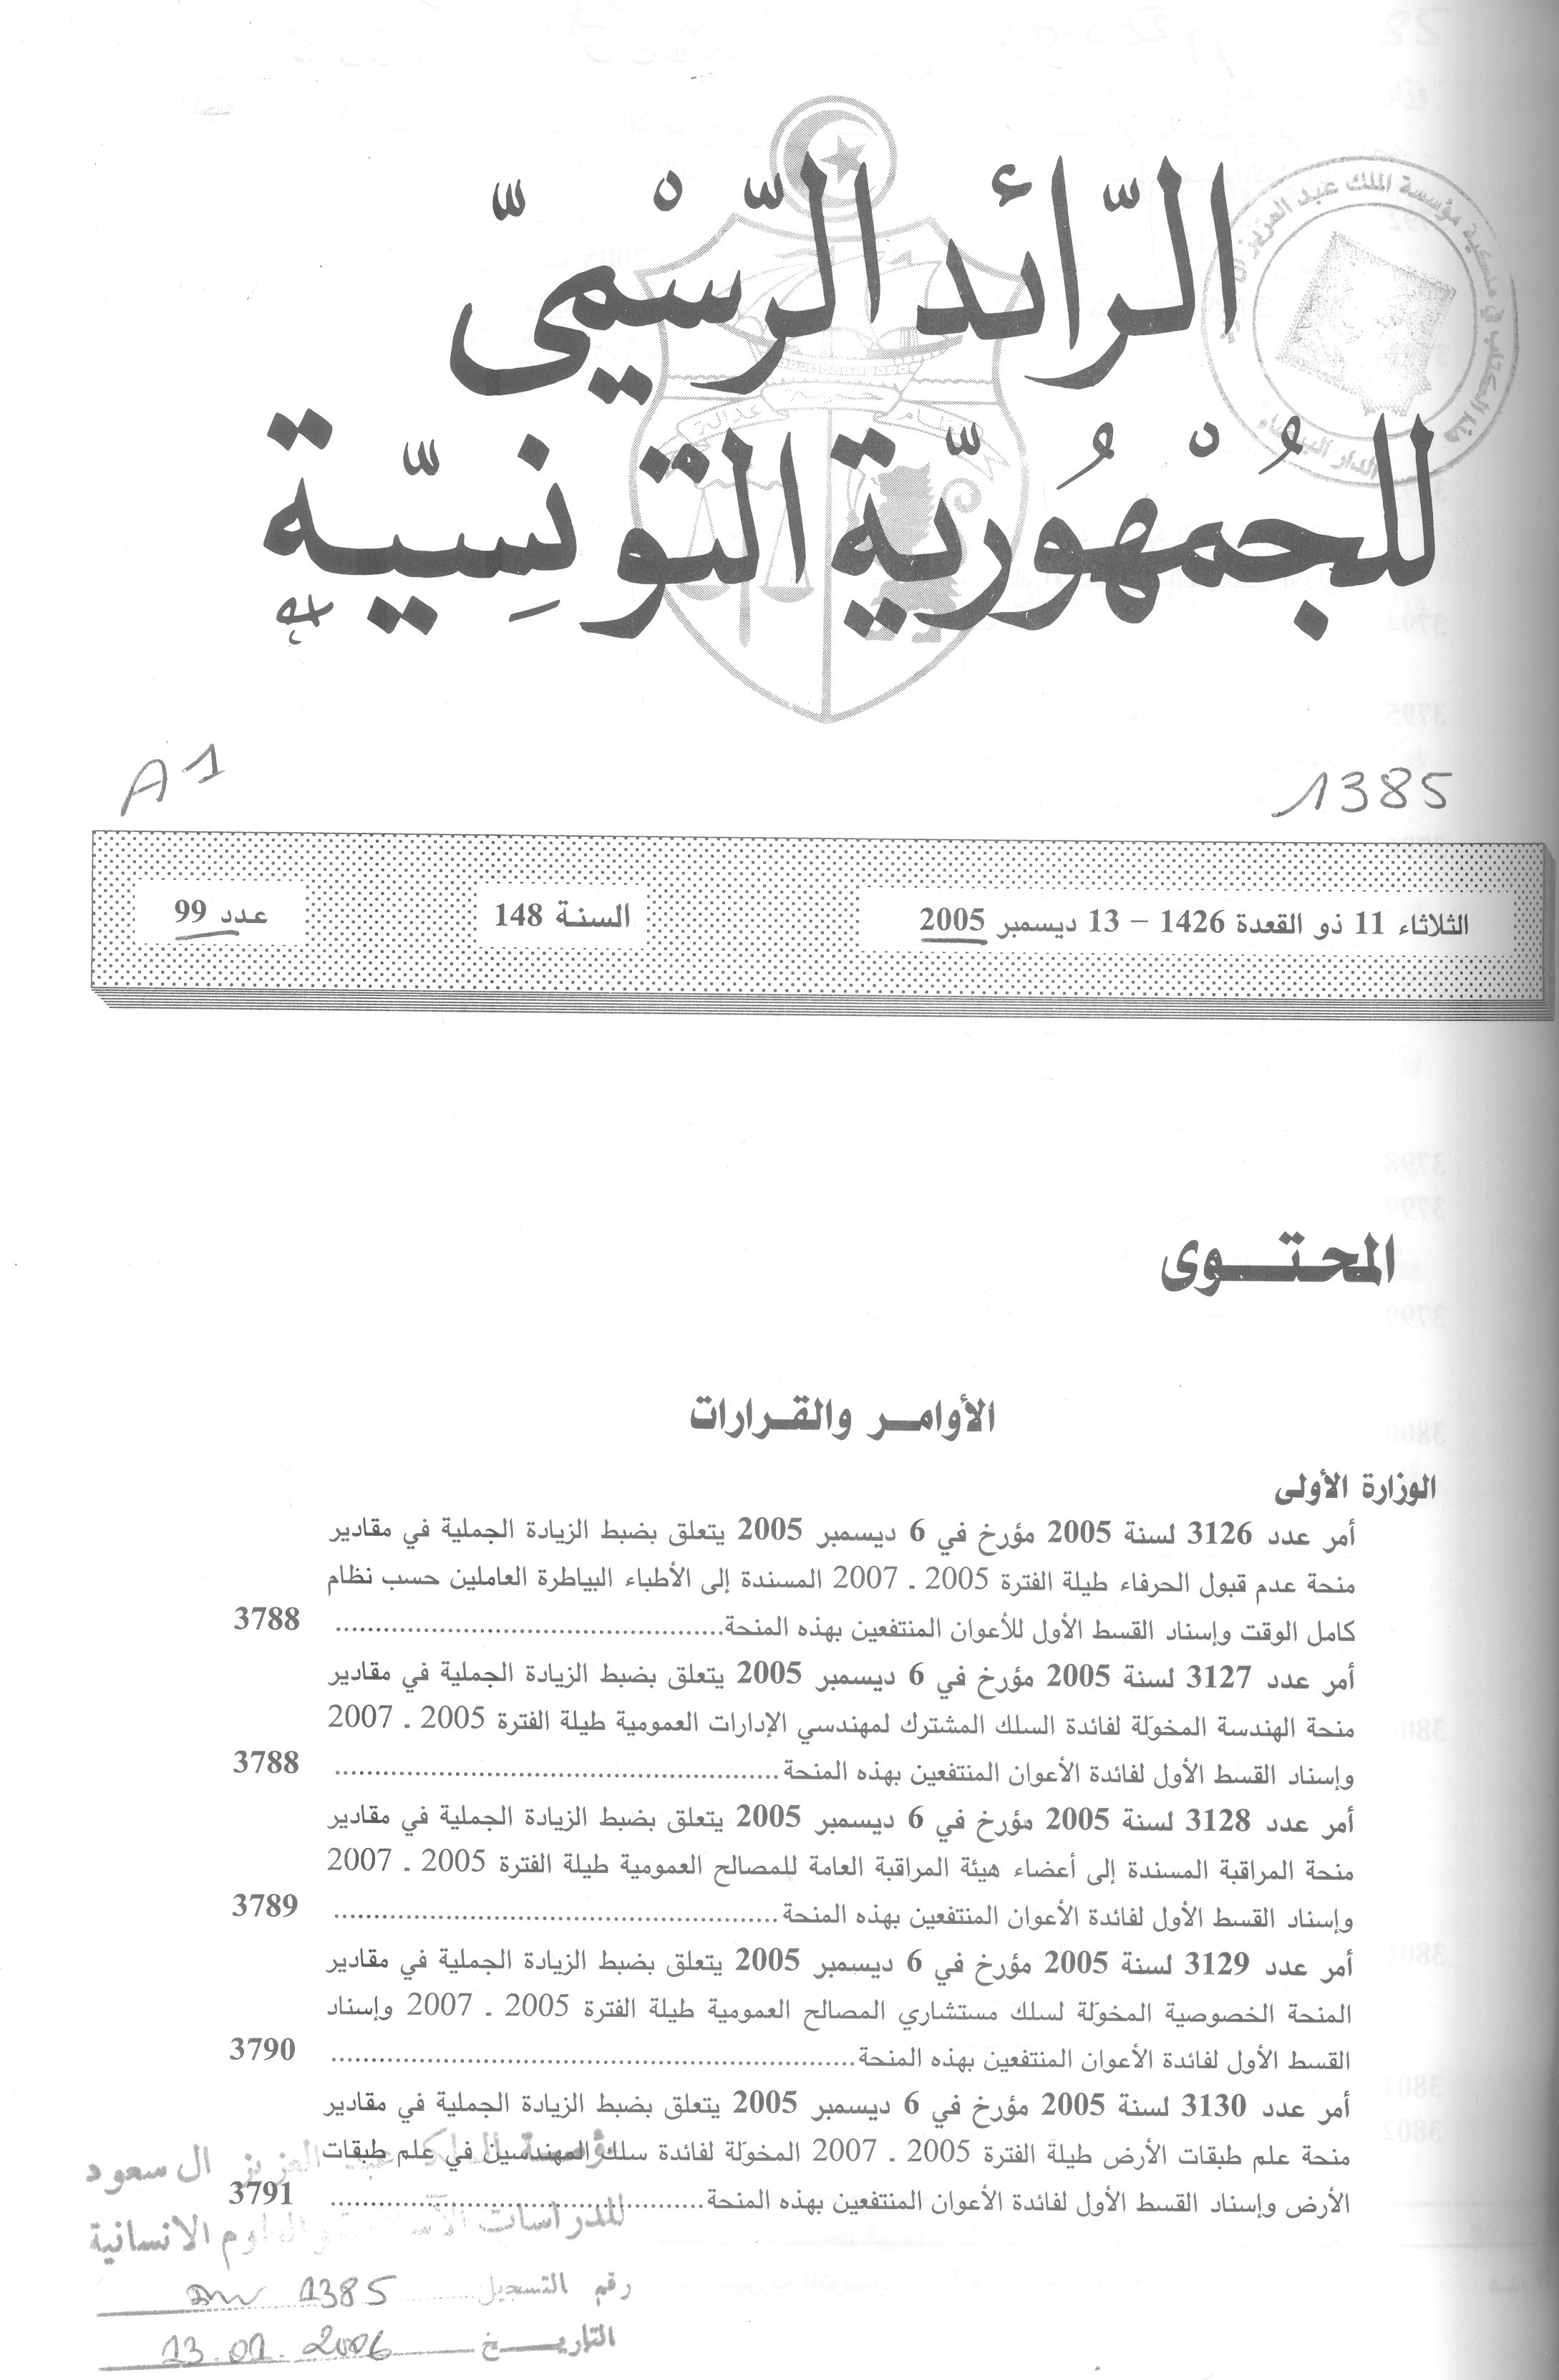 الرّائد الرّسْميّ
للجُمْهُوريّة التّونِسيّة
حرية
عدالة
مؤسسة الملك عبد العزيز
الدار البيضاء
A1
1385
الثلاثاء 11 ذو القعدة 1426 – 13 ديسمبر 2005
السنة 148
عدد 99
المحتوى
الأوامر والقرارات
الوزارة الأولى
أمر عدد 3126 لسنة 2005 مؤرخ في 6 ديسمبر 2005 يتعلق بضبط الزيادة الجملية في مقادير
منحة عدم قبول الحرفاء طيلة الفترة 2005 ـ 2007 المسندة إلى الأطباء البياطرة العاملين حسب نظام
كامل الوقت وإسناد القسط الأول للأعوان المنتفعين بهذه المنحة................................................ 3788
أمر عدد 3127 لسنة 2005 مؤرخ في 6 ديسمبر 2005 يتعلق بضبط الزيادة الجملية في مقادير
منحة الهندسة المخوّلة لفائدة السلك المشترك لمهندسي الإدارات العمومية طيلة الفترة 2005 ـ 2007
وإسناد القسط الأول لفائدة الأعوان المنتفعين بهذه المنحة....................................................... 3788
أمر عدد 3128 لسنة 2005 مؤرخ في 6 ديسمبر 2005 يتعلق بضبط الزيادة الجملية في مقادير
منحة المراقبة المسندة إلى أعضاء هيئة المراقبة العامة للمصالح العمومية طيلة الفترة 2005 ـ 2007
وإسناد القسط الأول لفائدة الأعوان المنتفعين بهذه المنحة....................................................... 3789
أمر عدد 3129 لسنة 2005 مؤرخ في 6 ديسمبر 2005 يتعلق بضبط الزيادة الجملية في مقادير
المنحة الخصوصية المخوّلة لسلك مستشاري المصالح العمومية طيلة الفترة 2005 ـ 2007 وإسناد
القسط الأول لفائدة الأعوان المنتفعين بهذه المنحة................................................................. 3790
أمر عدد 3130 لسنة 2005 مؤرخ في 6 ديسمبر 2005 يتعلق بضبط الزيادة الجملية في مقادير
منحة علم طبقات الأرض طيلة الفترة 2005 ـ 2007 المخوّلة لفائدة سلك المهندسين في علم طبقات
الأرض وإسناد القسط الأول لفائدة الأعوان المنتفعين بهذه المنحة............................................... 3791
مؤسسة الملك عبد العزيز ال سعود
للدراسات الاسلامية والعلوم الانسانية
رقم التسجيل 1385
التاريخ 13.01.2006